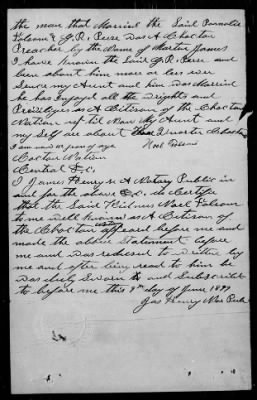 the man that Married the Said Parmelee
Folsom & G.R. Pierce was A Choctaw
Preacher by the Name of Martin James
I have Known the Said G.R. Pierce and
been about him more or less ever
Since my Aunt and him was Married
he has Enjoyed all the Wrights and
Privliges as A Citizen of the Choctaw
Nation up till Now My Aunt and
my Self are about Quarter Choctaw
I am now years of age Noel Folsom
Choctaw Nation
Central
I James Henry A Notary Public in
and for the above do Certify
that the Said Noel Folsom
to me well Known as A Citizen of
the Choctaw appeared before me and
made the above Statement before
me and was reduced to writin by
me and after being read to him he
was duly Sworn to and Subscribed
to before me this 9th day of June 1899
Jas Henry Not Pub